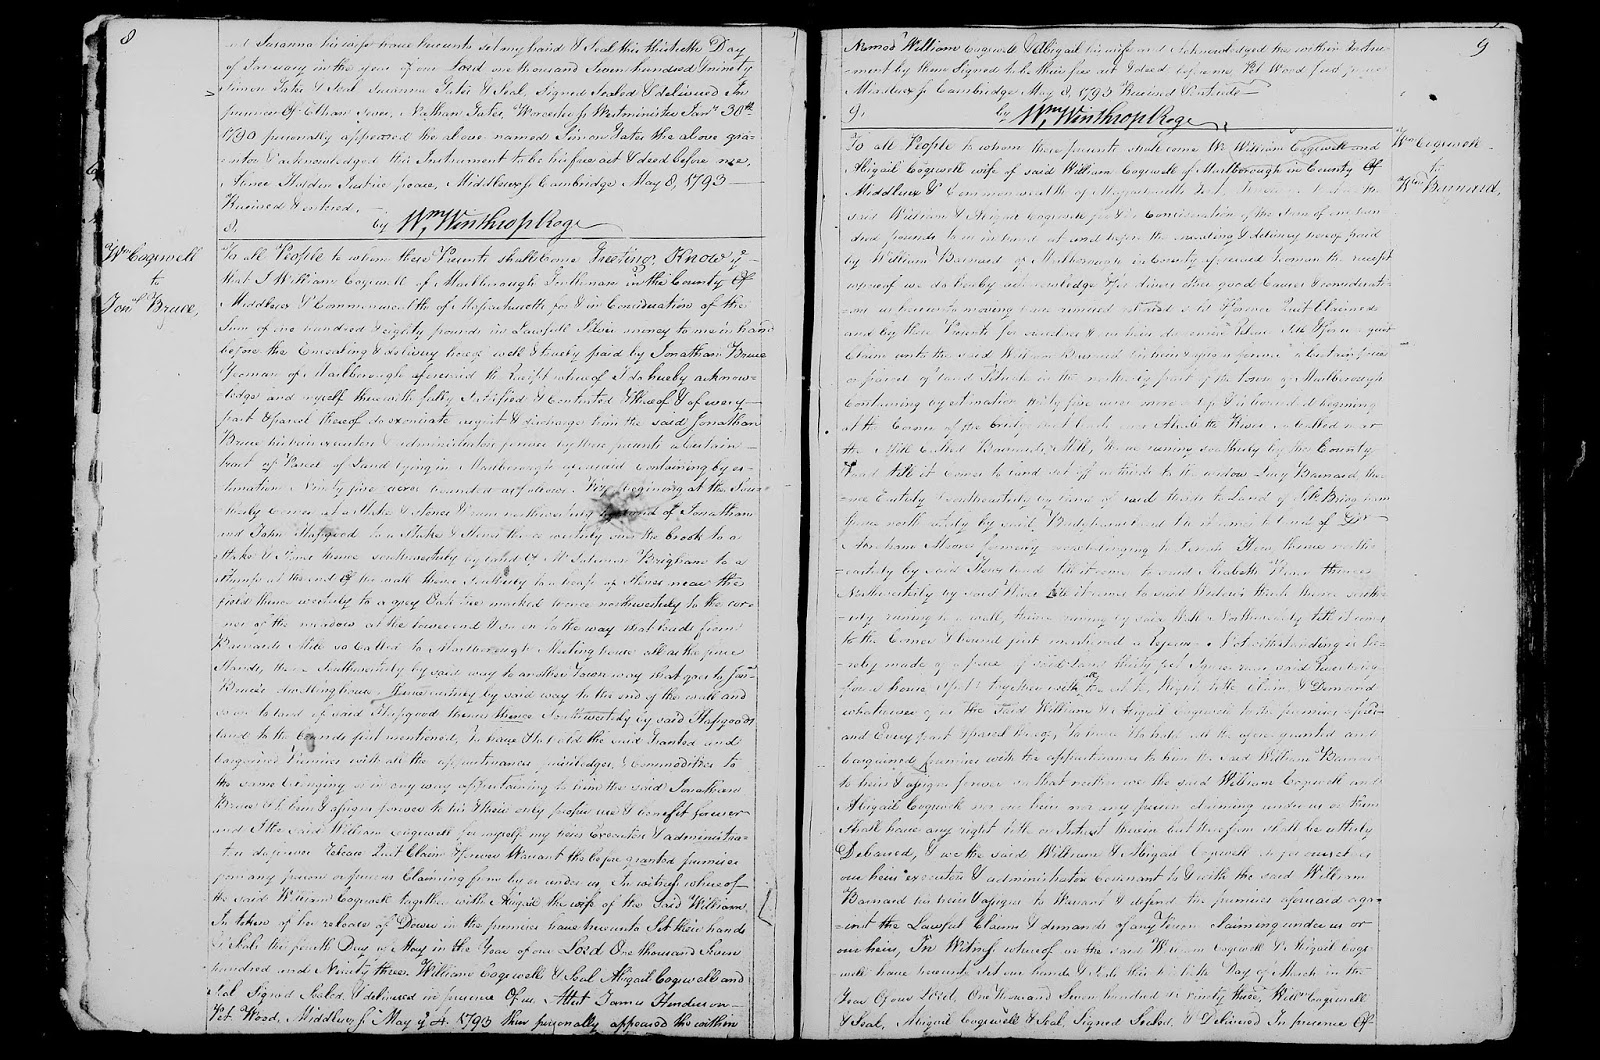 8
and Susanna his wife have hereunto set my hand & Seal this thirtieth Day
of January in the year of our Lord one thousand Seven hundred & ninety
Simon Gates & Seal Susanna Gates & Seal, Signed Sealed & delivered In
presence Of Nathan Gates, Worcester ss Westminster Janr. 30th
1790 personally appeared the above named Simon Gates the above gra-
-ntor & acknowledged this Instrument to be his free act & deed before me,
Holden Justice peace, Middlesex ss Cambridge May 8, 1793
Received & entered,
8. by Wm. Winthrop Regr
Wm Cogswell
to
Jona Bruce,
To all People to whom these Presents shall come Greeting, Know ye
that I William Cogswell of Marlborough Gentleman in the County Of
Middlesex & Commonwealth of Massachusetts for & in Consideration of the
Sum of one hundred & eighty pounds in Lawfull Silver money to me in hand
before the Ensealing & delivery hereof well & truely paid by Jonathan Bruce
Yeoman of Marlborough aforesaid the Receipt whereof I do hereby acknow-
ledge and myself therewith fully Satisfied & Contented & thereof & of every
part & parcel thereof do exonerate acquit & discharge him the said Jonathan
Bruce his heirs executors & administrators forever by these presents a Certain
tract or Parcel of Land lying in Marlborough aforesaid Containing by es-
timation Ninety five acres bounded as follows begining at the Sou-
-therly Corner at a Stake & Stones thence northwesterly of Jonathan
and John Hapgood to a Stake & Stones thence westerly over the brook to a
Stake & Stones thence southwesterly by land of Mr Solomon Brigham to a
Stump at the end of the wall thence Southerly to a heap of Stones near the
field thence westerly to a grey Oak tree marked thence northwesterly to the cor-
ner of the meadow at the lower end to the way that leads from
Barnards Mills so Called to Marlborough Meeting house as the fence
Stands, thence Southwesterly by said way to another Town way that goes to Jona
Bruces dwelling house, thence easterly by said way to the end of the wall and
to land of said Hapgood thence thence Southwesterly by said Hapgoods
land to the bounds first mentioned, To have & hold the said Granted and
bargained Premises with all the appurtenances priviledges, & commodities to
the same belonging or in any way appertaining to him the said Jonathan
Bruce his heirs & assigns forever to his & their only proper use & benefit forever
and I the said William Cogswell for myself my heirs Executors & administra-
tors do forever Release Quit Claim & forever Warrant the before granted premises
from any person or persons Claiming from by or under us, In witness whereof
the said William Cogswell together with Abigail the wife of the said William,
In token of her release of Dower in the premises have hereunto Set their hands
& seals this fourth Day of May in the Year of our Lord One thousand Seven
hundred and Ninety three William Cogswell & Seal Abigail Cogswell and
Seal Signed Sealed, & delivered in presence Of us, Attest James Henderson
Pet. Wood, Middlesex ss May ye 4. 1793 Then personally appeared the within
9
Named William Cogswell & Abigail his wife and Acknowledged the within Instru-
-ment by them Signed to be their free act & deed before me, Pet. Wood Just. peace
Middlesex ss Cambridge May 8, 1793 Received & entered
9. by Wm. Winthrop Regr.
Wm Cogswell
to
Wm Barnard,
To all People to whom these presents shall come We William Cogswell and
Abigail Cogswell wife of said William Cogswell of Marlborough in County Of
Middlesex & Commonwealth of Massachusetts
said William & Abigail Cogswell for & in Consideration of the Sum of one hun
dred pounds to us in hand at and before the ensealing & delivery hereof paid
by William Barnard of Marlborough in County aforesaid Yeoman the receipt
whereof we do hereby acknowledge & for divers other good Causes & considerati-
-ons us hereunto moving have remised released sold & forever Quit Claimed
and by these Presents for ourselves & our heirs do remise Release sell & forever quit
Claim unto the said William Barnard his heirs & assigns forever a Certain piece
or parcel of land Situate in the northerly part of the town of Marlborough
Containing by estimation thirty five acres more or less & is bounded begining
at the Corner of the bridge Assabeth River so Called near
the Mill Called Barnards Mill, thence runing southerly by the County
Road till it comes to land set off as thirds to the widow Lucy Barnard the-
-nce Easterly & northeasterly by land of said thirds to Land of Brigham
thence north easterly by said Brigham land till it comes to land of Dr.
Abraham Moore formerly now belonging to How, thence northe-
-easterly by said Hows land till it comes to said Assabeth River thence
Northwesterly by said River till it comes to said Widow's thirds thence south-
-erly runing to a wall, thence runing by said thirds Northwesterly till it comes
to the Corner & bound first mentioned a begun Notwithstanding is he-
-reby made of a piece of said Land thirty feet Square
together with all the estate, Right, title Claim, & Demand
whatsoever of us the said William & Abigail Cogswell to the premises afores-
and Every part & parcel thereof, To have & to hold all the afore granted and
bargained premises with the appurtenances to him the said William Barnard
to heirs & assigns forever so that neither we the said William Cogswell and
Abigail Cogswell nor our heirs nor any person claiming under us or them
Shall have any right title or Interest therein but therefrom shall be utterly
Debarred, & we the said William & Abigail Cogswell do for ourselves
our heirs executors & administrators Covenant to & with the said William
Barnard his heirs & assigns to Warrant & defend the premises aforesaid aga-
-inst the Lawful Claims & demands of any Person Claiming under us or
our heirs, In Witness whereof we the said William Cogswell & Abigail Cogs-
well have hereunto set our hands & Seals this Day of March in the
Year Of our Lord, One thousand Seven hundred & ninety three, Willm Cogswell
& Seal, Abigail Cogswell & Seal, Signed Sealed, & Delivered In presence Of